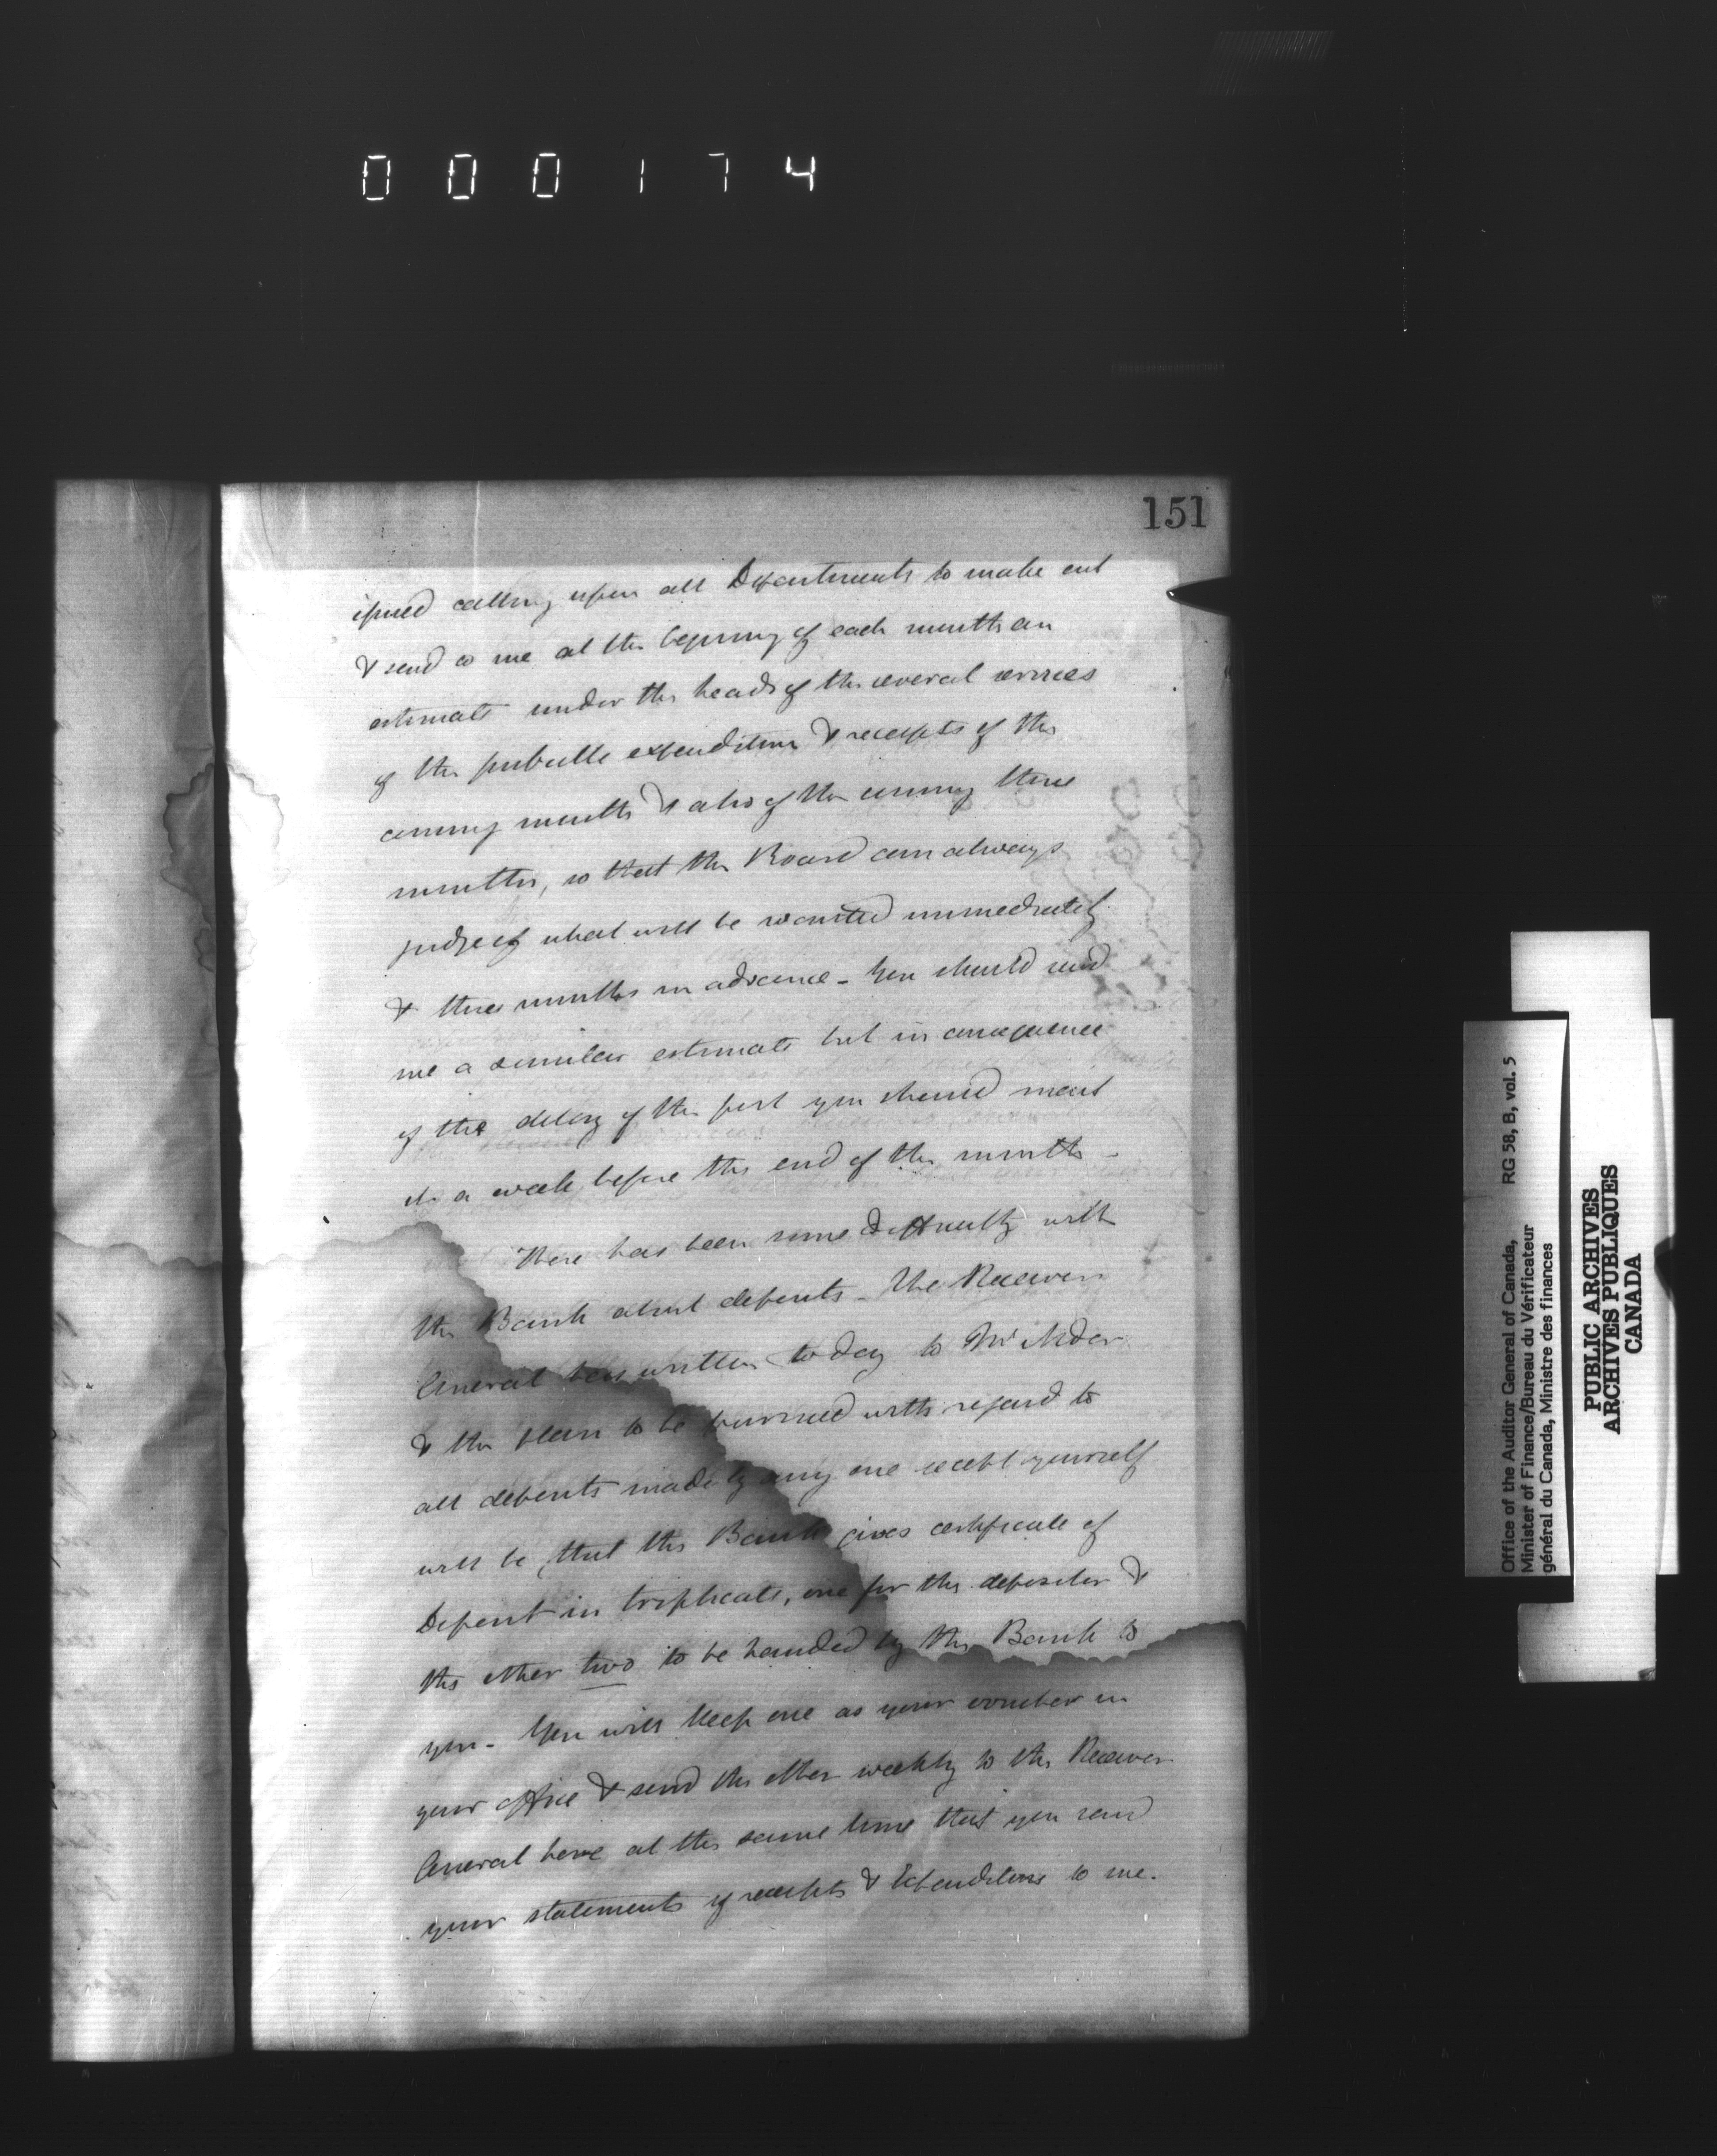 000174
151
issued calling upon all Departments to make out
& send to me at the beginning of each month an
estimate under the heads of the several services
of the probable expenditure & receipts of the
coming month & also of the coming three
months, so that the Board can always
judge of what will be wanted immediately
& three months in advance - You should send
me a similar estimate but in consequence
of the delay of the post you should mail
it a week before the end of the month -
There has been some difficulty with
the Bank about deposits - The Receiver
General has written to day to Mr
& the plan to be pursued with regard to
all deposits made by any one except yourself
will be that the Bank gives certificate of
Deposit in triplicate, one for the depositor &
the other two to be handed by the Bank to
you - You will keep one as your voucher in
your office & send the other weekly to the Receiver
General here at the same time that you send
your statements of receipts & Expenditure to me.
Office of the Auditor General of Canada, RG 58, B, vol. 5
Minister of Finance/Bureau du Vérificateur
général du Canada, Ministre des finances
PUBLIC ARCHIVES
ARCHIVES PUBLIQUES
CANADA